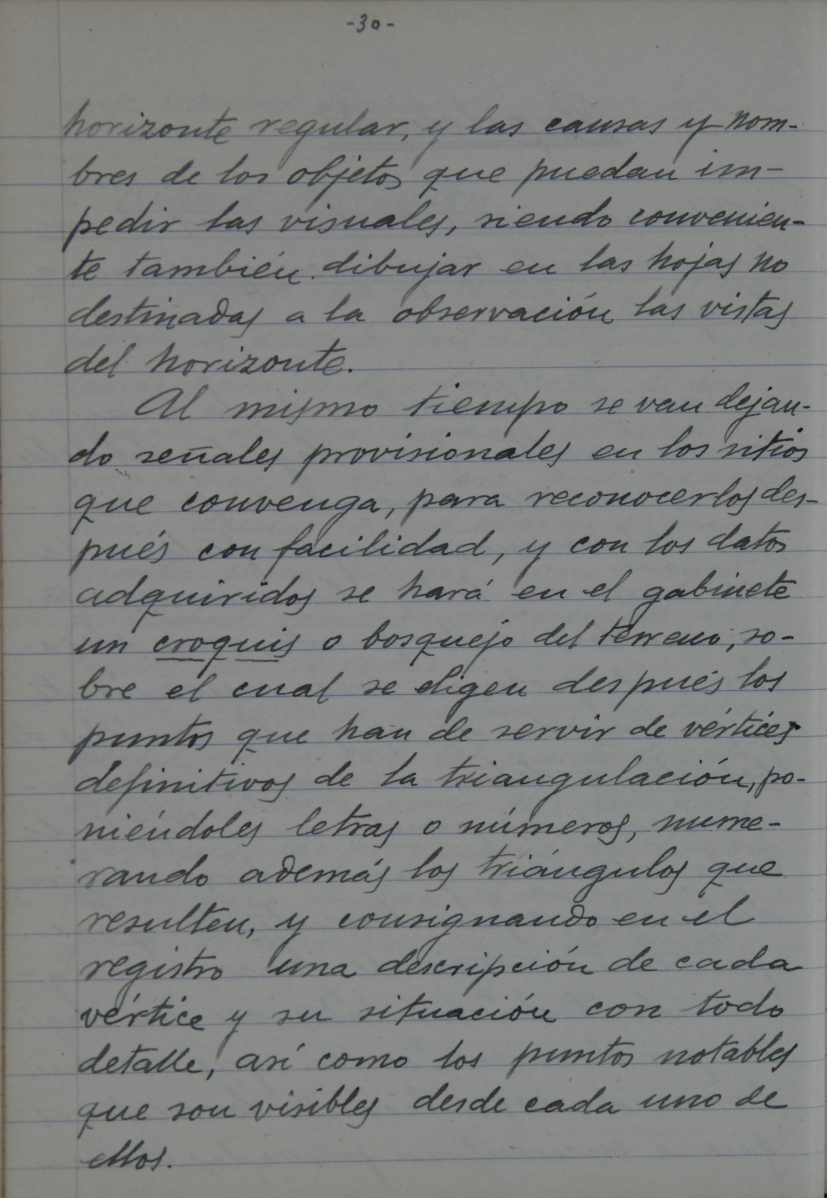 -30-
horizonte regular, y las causas y nom-
bres de los objetos que puedan im-
pedir las visuales, siendo convenien-
te también dibujar en las hojas no
destinadas a la observación las vistas
del horizonte.
Al mismo tiempo se van dejan-
do señales provisionales en los sitios
que convenga, para reconocerlos des-
pués con facilidad, y con los datos
adquiridos se hará en el gabinete
un croquis o bosquejo del terreno, so-
bre el cual se eligen después los
puntos que han de servir de vértices
definitivos de la triangulación, po-
niéndoles letras o números, nume-
rando además los triángulos que
resulten, y consignando en el
registro una descripción de cada
vértice y su situación con todo
detalle, así como los puntos notables
que son visibles desde cada uno de
ellos.